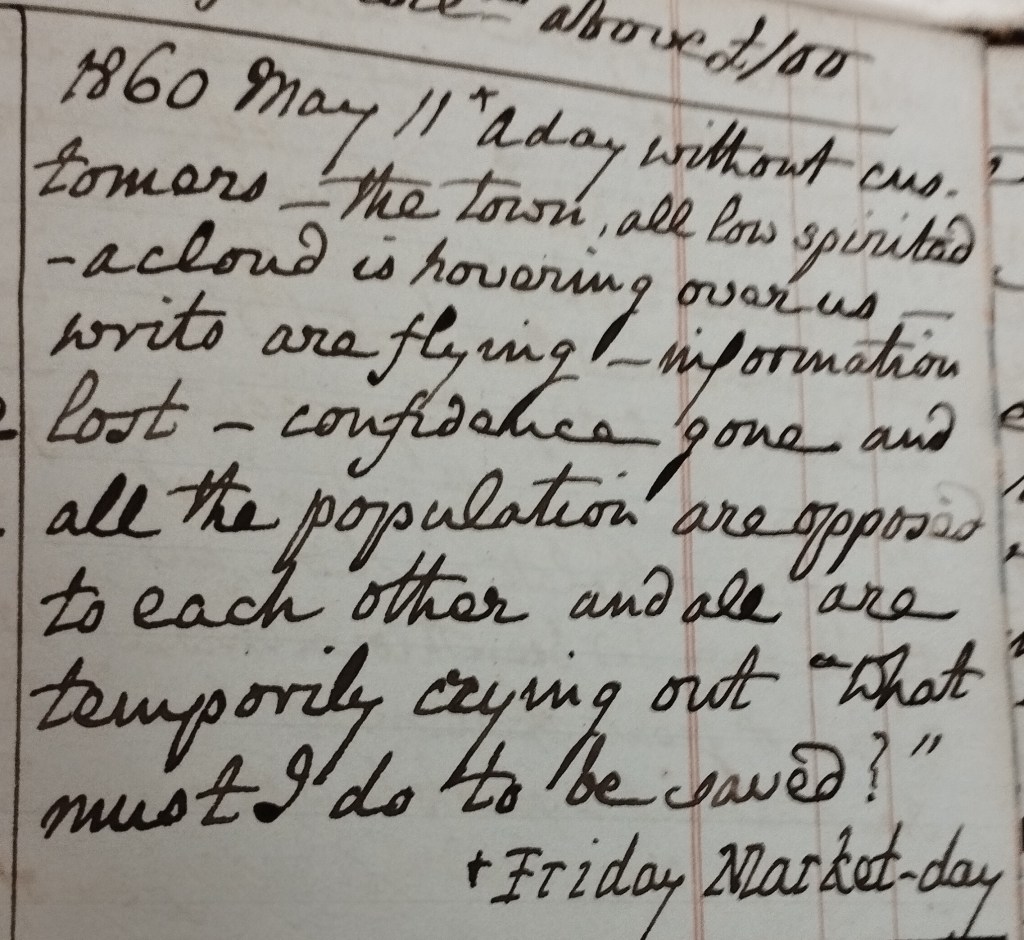 above £100
1860 May 11 + A day without cus-
tomers – the town, all low spirited
– a cloud is hovering over us –
writs are flying – information
lost – confidence gone and
all the population are opposed
to each other and all are
temporily crying out "What
must I do to be saved?"
+ Friday Market-day